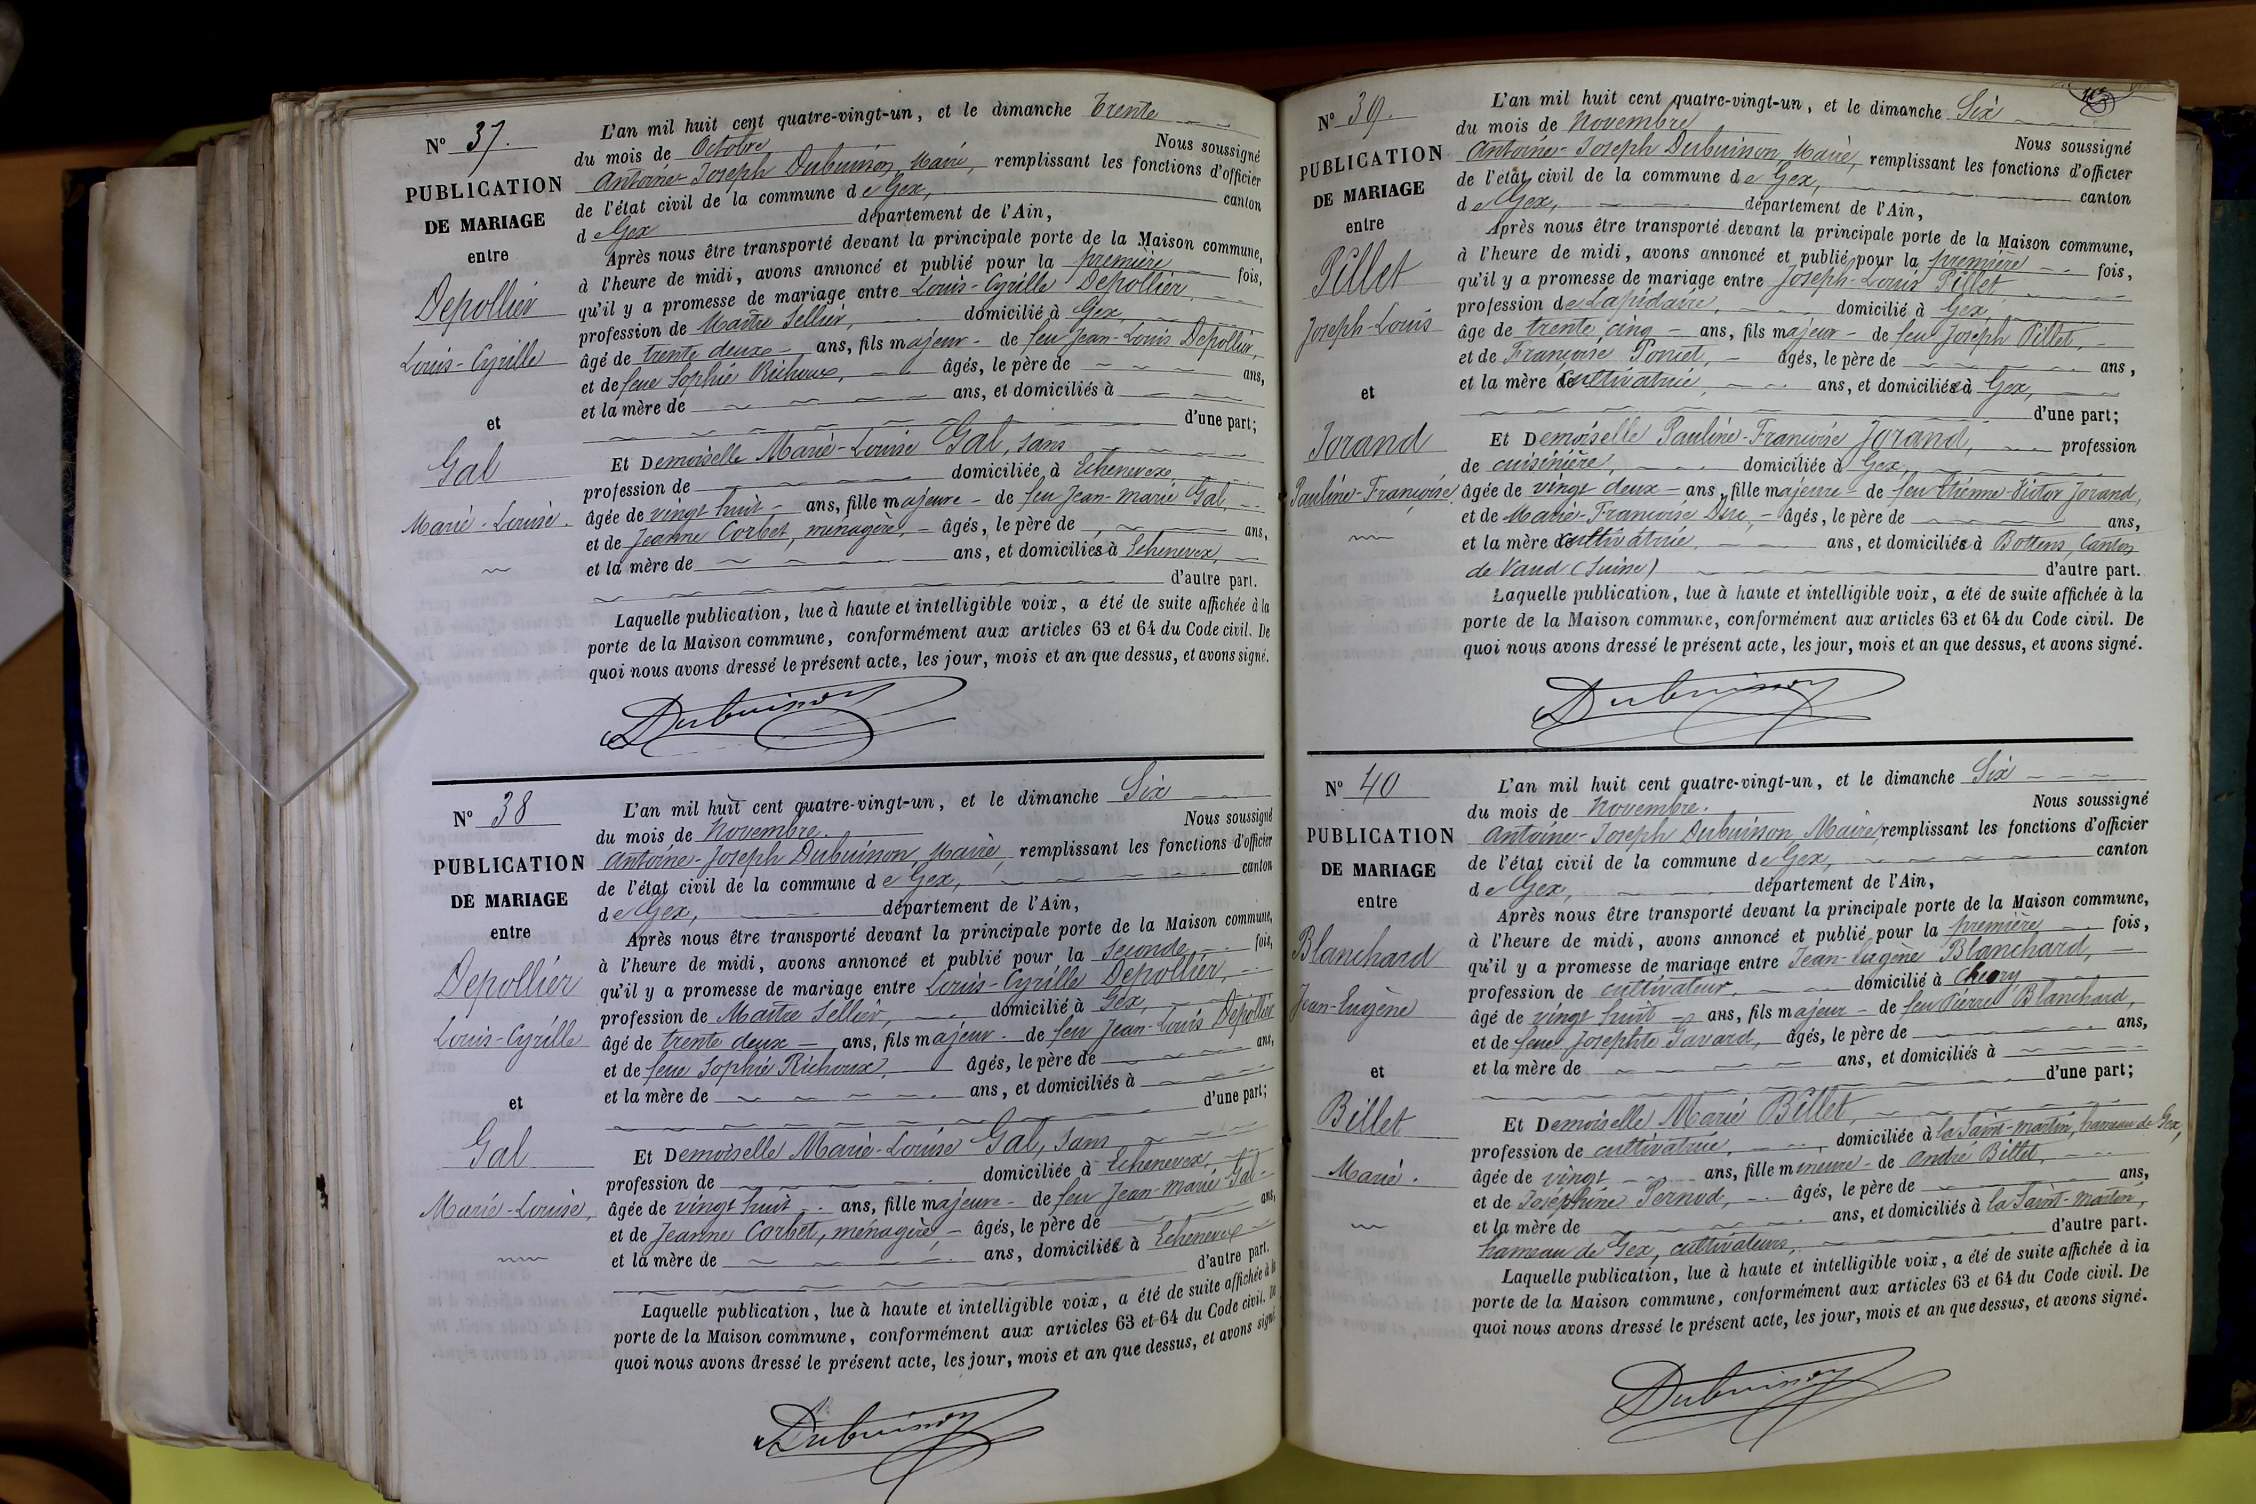 N° 37.
PUBLICATION
DE MARIAGE
entre
Depollier
Louis-Cyrille
et
Gal
Marie-Louise.
L'an mil huit cent quatre-vingt-un, et le dimanche Trente
du mois de Octobre Nous soussigné
Antoine Joseph Dubuisson, Maire, remplissant les fonctions d'officier
de l'état civil de la commune de Gex, canton
de Gex département de l'Ain,
Après nous être transporté devant la principale porte de la Maison commune,
à l'heure de midi, avons annoncé et publié pour la première fois,
qu'il y a promesse de mariage entre Louis-Cyrille Depollier,
profession de Maître Sellier, domicilié à Gex,
âgé de trente deux ans, fils majeur de feu Jean-Louis Depollier,
et de feue Sophie Richoux, âgés, le père de ans,
et la mère de ans, et domiciliés à
d'une part;
Et Demoiselle Marie-Louise Gal, sans
profession de domiciliée à Echenevex
âgée de vingt huit ans, fille majeure de feu Jean-Marie Gal,
et de Jeanne Corbet, ménagère, âgés, le père de ans,
et la mère de ans, et domiciliés à Echenevex,
d'autre part.
Laquelle publication, lue à haute et intelligible voix, a été de suite affichée à la
porte de la Maison commune, conformément aux articles 63 et 64 du Code civil. De
quoi nous avons dressé le présent acte, les jour, mois et an que dessus, et avons signé.
Dubuisson
N° 38
PUBLICATION
DE MARIAGE
entre
Depollier
Louis-Cyrille
et
Gal
Marie-Louise,
L'an mil huit cent quatre-vingt-un, et le dimanche Six
du mois de Novembre. Nous soussigné
Antoine-Joseph Dubuisson, Maire, remplissant les fonctions d'officier
de l'état civil de la commune de Gex, canton
de Gex, département de l'Ain,
Après nous être transporté devant la principale porte de la Maison commune,
à l'heure de midi, avons annoncé et publié pour la seconde fois,
qu'il y a promesse de mariage entre Louis-Cyrille Depollier,
profession de Maître Sellier, domicilié à Gex,
âgé de trente deux ans, fils majeur de feu Jean-Louis Depollier
et de feue Sophie Richoux, âgés, le père de ans,
et la mère de ans, et domiciliés à
d'une part;
Et Demoiselle Marie-Louise Gal, sans
profession de domiciliée à Echenevex,
âgée de vingt huit ans, fille majeure de feu Jean-Marie Gal
et de Jeanne Corbet, ménagère, âgés, le père de ans,
et la mère de ans, domiciliée à Echenevex
d'autre part.
Laquelle publication, lue à haute et intelligible voix, a été de suite affichée à la
porte de la Maison commune, conformément aux articles 63 et 64 du Code civil. De
quoi nous avons dressé le présent acte, les jour, mois et an que dessus, et avons signé
Dubuisson
N° 39.
PUBLICATION
DE MARIAGE
entre
Pillet
Joseph-Louis
et
Jorand
Pauline-Françoise
L'an mil huit cent quatre-vingt-un, et le dimanche Six
du mois de Novembre Nous soussigné
Antoine-Joseph Dubuisson, Maire, remplissant les fonctions d'officier
de l'état civil de la commune de Gex, canton
de Gex, département de l'Ain,
Après nous être transporté devant la principale porte de la Maison commune,
à l'heure de midi, avons annoncé et publié pour la première fois,
qu'il y a promesse de mariage entre Joseph-Louis Pillet
profession de Lapidaire, domicilié à Gex,
âgé de trente cinq ans, fils majeur de feu Joseph Pillet,
et de Françoise Poncet, âgés, le père de ans,
et la mère cultivatrice, ans, et domiciliée à Gex,
d'une part;
Et Demoiselle Pauline-Françoise Jorand, profession
de cuisinière, domiciliée à Gex,
âgée de vingt deux ans, fille majeure de feu Etienne-Victor Jorand,
et de Marie-Françoise âgés, le père de ans,
et la mère cultivatrice, ans, et domiciliée à Bottens, Canton
de Vaud (Suisse) d'autre part.
Laquelle publication, lue à haute et intelligible voix, a été de suite affichée à la
porte de la Maison commune, conformément aux articles 63 et 64 du Code civil. De
quoi nous avons dressé le présent acte, les jour, mois et an que dessus, et avons signé.
Dubuisson
N° 40
PUBLICATION
DE MARIAGE
entre
Blanchard
Jean-Eugène
et
Billet
Marie.
L'an mil huit cent quatre-vingt-un, et le dimanche Six
du mois de Novembre. Nous soussigné
Antoine-Joseph Dubuisson, Maire, remplissant les fonctions d'officier
de l'état civil de la commune de Gex, canton
de Gex, département de l'Ain,
Après nous être transporté devant la principale porte de la Maison commune,
à l'heure de midi, avons annoncé et publié pour la première fois,
qu'il y a promesse de mariage entre Jean-Eugène Blanchard,
profession de cultivateur, domicilié à
âgé de vingt huit ans, fils majeur de feu Pierre Blanchard,
et de feue Josephte Gavard, âgés, le père de ans,
et la mère de ans, et domiciliés à
d'une part;
Et Demoiselle Marie Billet,
profession de cultivatrice, domiciliée à la Saint-Martin, hameau de Gex,
âgée de vingt ans, fille mineure de André Billet,
et de Joséphine Pernod, âgés, le père de ans,
et la mère de ans, et domiciliés à la Saint-Martin,
hameau de Gex, cultivateurs, d'autre part.
Laquelle publication, lue à haute et intelligible voix, a été de suite affichée à la
porte de la Maison commune, conformément aux articles 63 et 64 du Code civil. De
quoi nous avons dressé le présent acte, les jour, mois et an que dessus, et avons signé.
Dubuisson